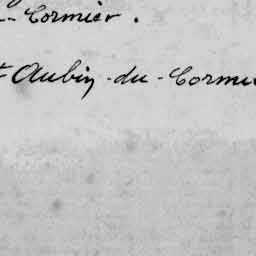 -Cormier.
t Aubin-du-Cormie